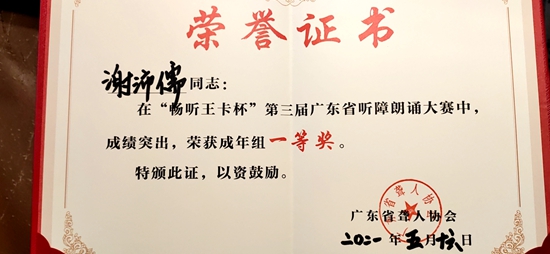 荣誉证书
谢沛儒同志：
在“畅听王卡杯”第三届广东省听障朗诵大赛中，
成绩突出，荣获成年组一等奖。
特颁此证，以资鼓励。
广东省聋人协会
二〇二一年五月十六日